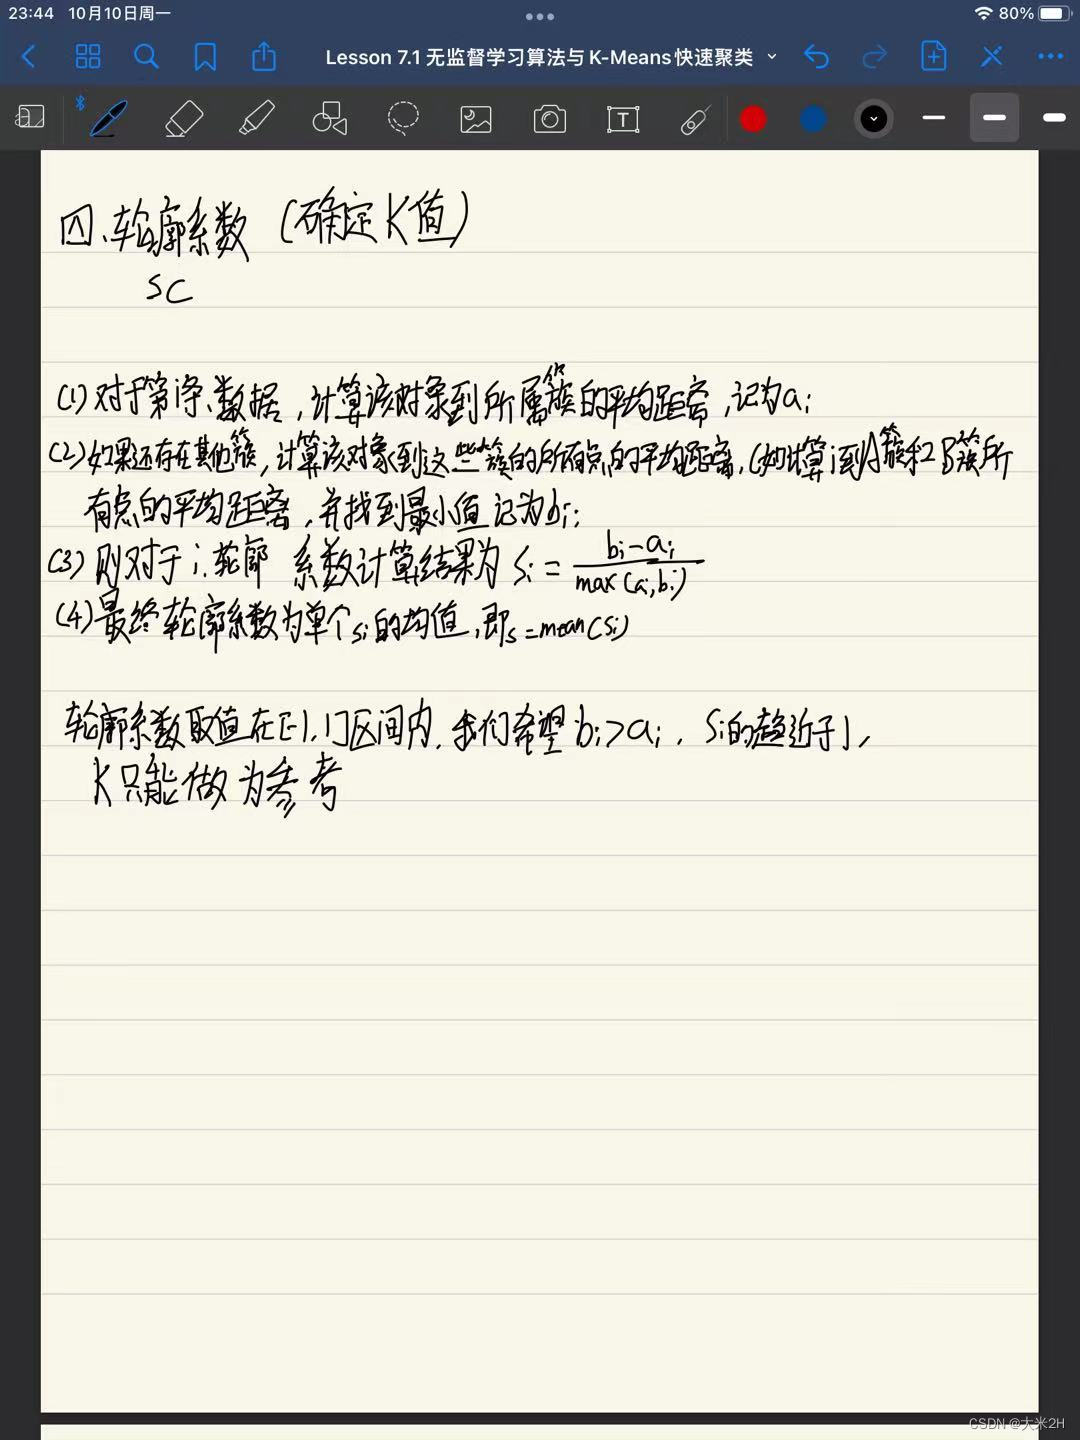 23:44 10月10日周一
80%
Lesson 7.1 无监督学习算法与 K-Means 快速聚类
T
四、轮廓系数 (确定K值)
SC
(1) 对于第i条数据，计算该对象到所属簇的平均距离，记为ai
(2) 如果还存在其他簇，计算该对象到这些簇的所有点的平均距离，(如计算i到A簇和B簇所
有点的平均距离，并找到最小值记为bi;
(3) 则对于i，轮廓 系数计算结果为 Si = bi-ai / max(ai,bi)
(4) 最终轮廓系数为单个si的均值，即s=mean(si)
轮廓系数取值在[-1,1]区间内，我们希望bi>ai，Si的趋近于1，
K只能做为参考
CSDN @大米2H